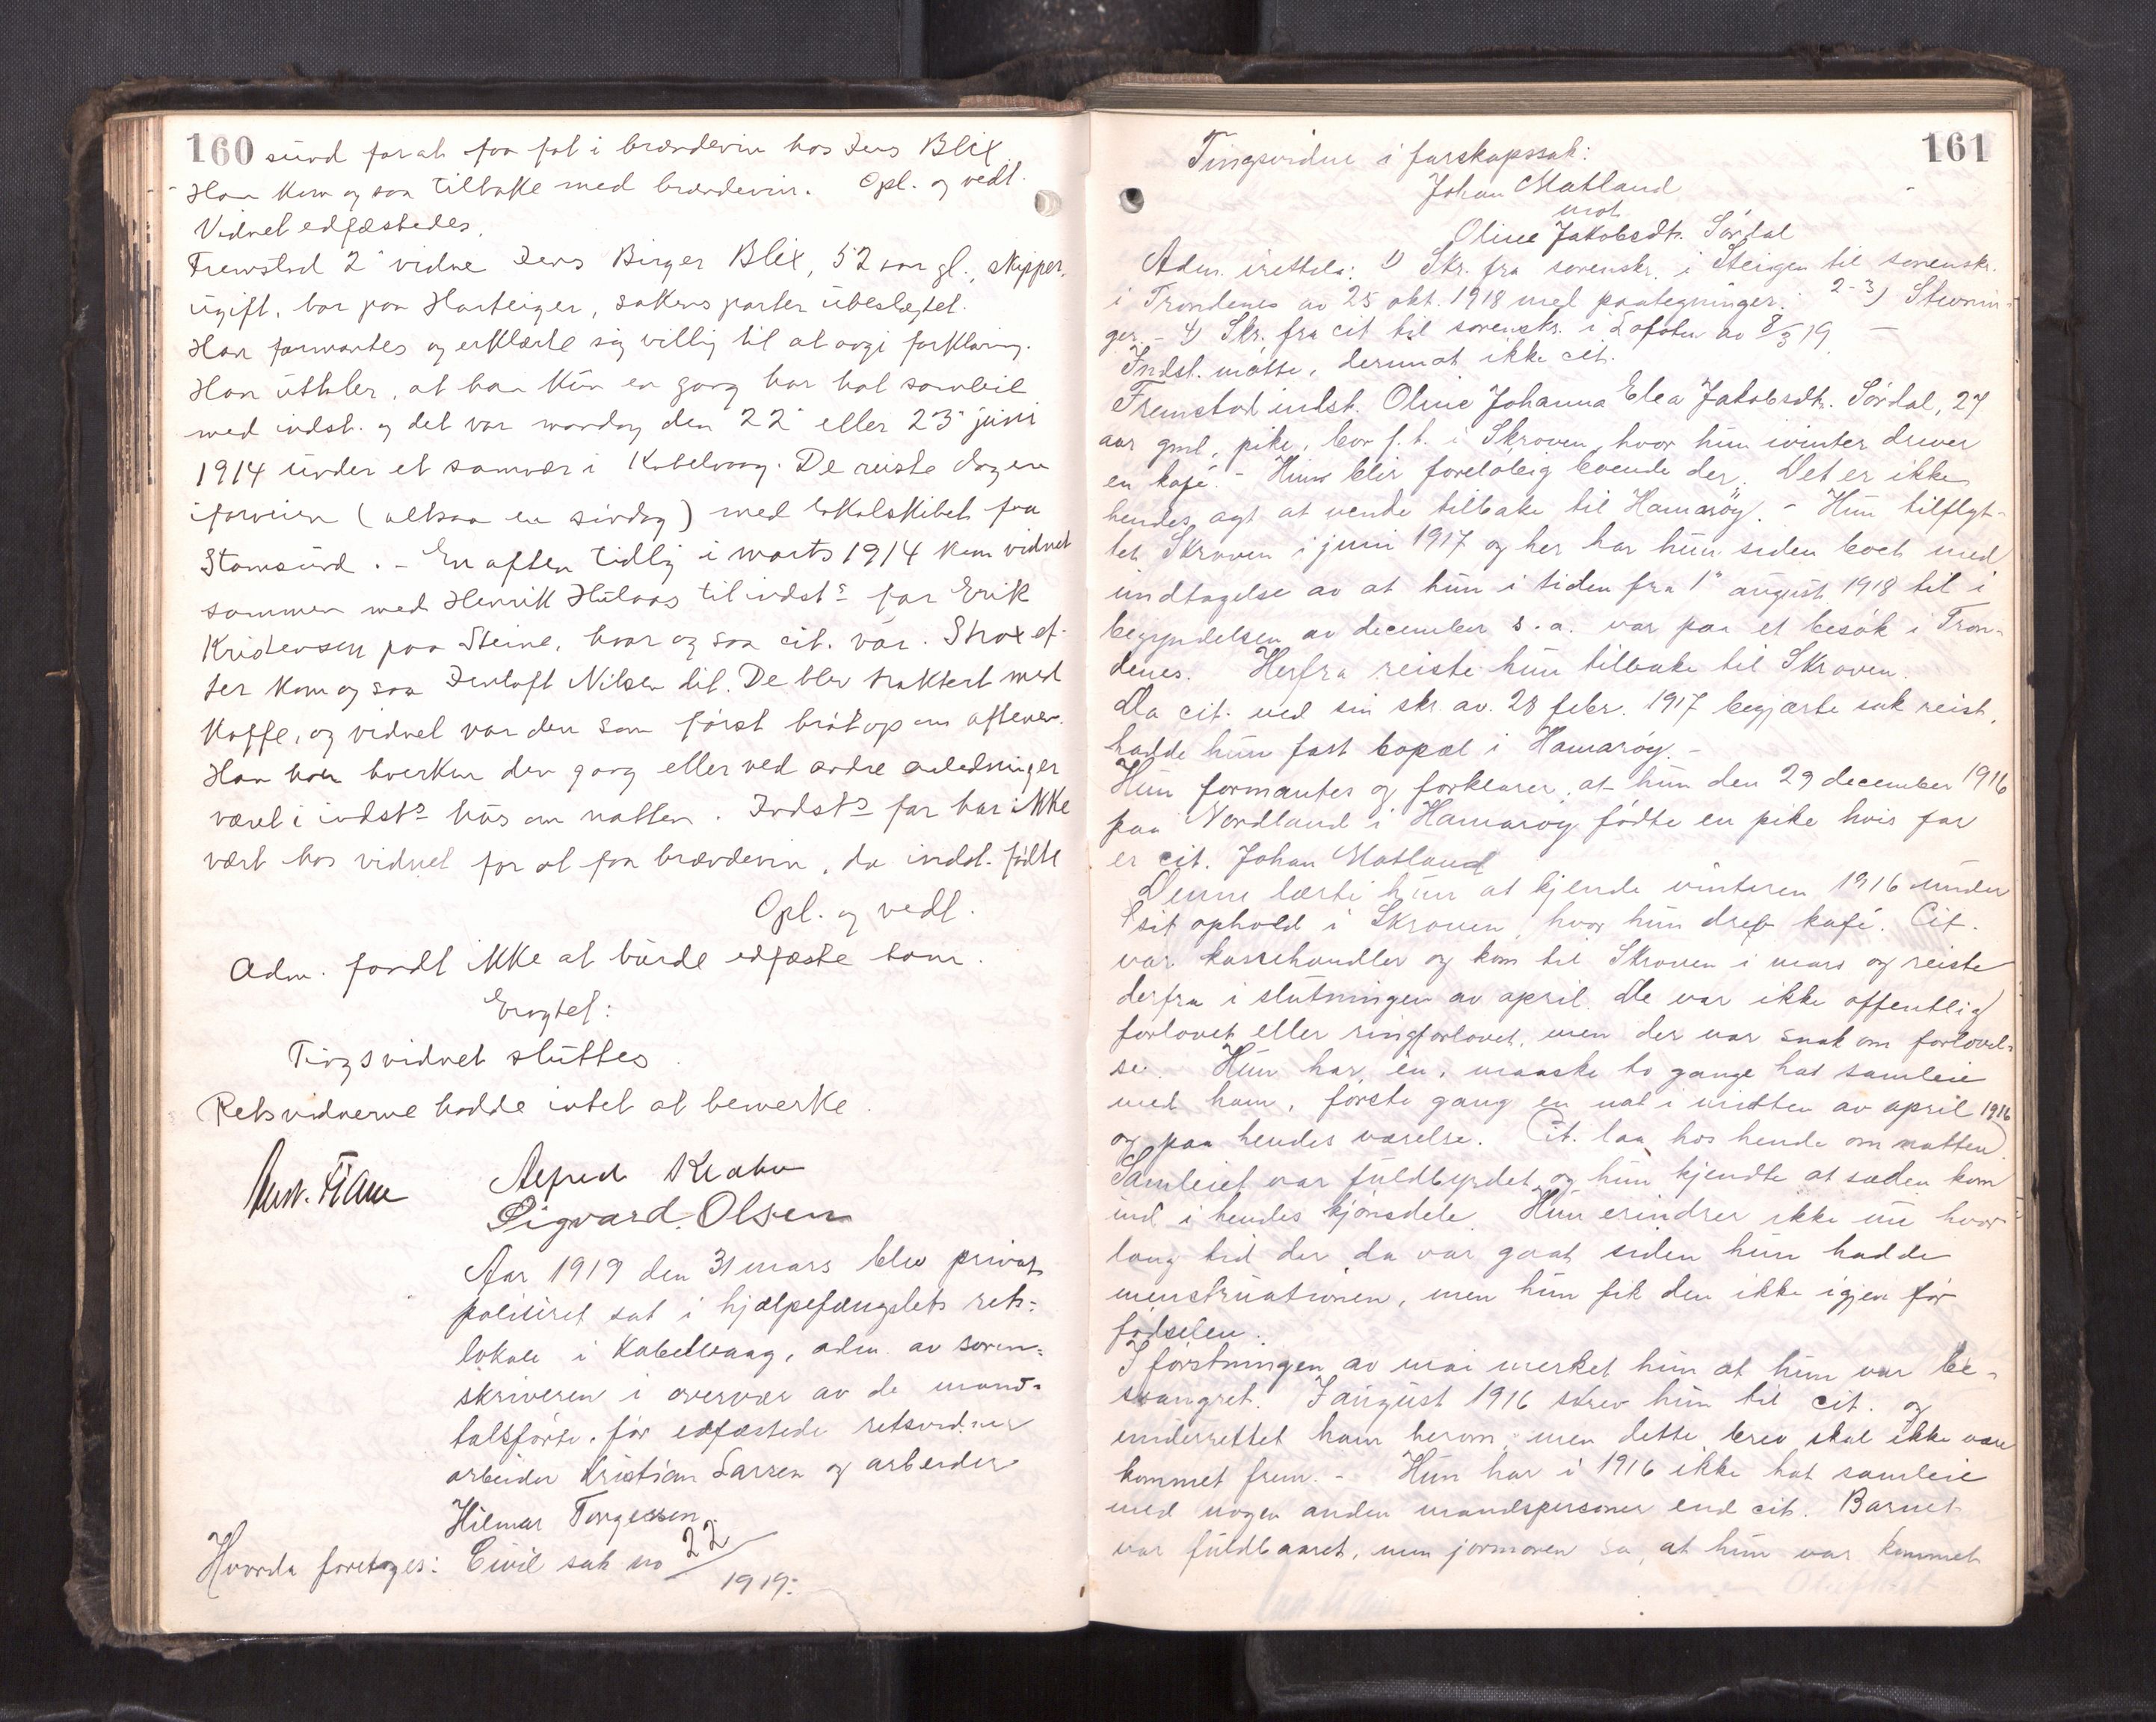 160
sund for at faa fat i brændevin hos Jens Blix.
Han kom ogsaa tilbake med brændevin. Opl. og vedt.
Vidnet edfæstedes.
Fremstod 2' vidne Jens Birger Blix, 52 aar gl., skipper,
ugift, bor paa , sakens parter ubeslegtet.
Han formantes og erklærte sig villig til at avgi forklaring.
Han uttaler, at han kun en gang har hat samleie
med indst. og det var mandag den 22' eller 23' juni
1914 under et samvær i Kabelvaag. De reiste dagen
iforveien (altsaa en søndag) med lokalskibet fra
Stamsund. - En aften tidlig i marts 1914 kom vidnet
sammen med Henrik til indsts far Erik
paa Steine, hvor ogsaa cit. var. Strax ef-
ter kom ogsaa Jentoft Nilsen dit. De blev traktert med
kaffe, og vidnet var den som først brøt op om aftenen.
Han har hverken den gang eller ved andre anledninger
været i indsts hus om natten. Indsts far har ikke
vært hos vidnet for at faa brændevin, da indst. fødte
Opl. og vedt.
Adm. fandt ikke at burde edfæste ham.
Eragtet:
Tingsvidnet sluttes.
Retsvidnerne hadde intet at bemerke.
Alfred Krabu
Sigvard. Olsen
Aar 1919 den 31 mars blev privat
politiret sat i hjælpefængslets rets-
lokale i Kabelvaag, adm. av soren-
skriveren i overvær av de mand-
talsførte, før edfæstede retsvidner
arbeider Kristian Larsen og arbeider
Hilmar Torgessen.
Hvorda foretoges: Civil sak no 22/1919:
161
Tingsvidne i farskapssak:
Johan Matland
mot
Oline Jakobsdtr. Sørdal
Adm. irettela: 1) Skr. fra sorenskr. i Steigen til sorenskr.
i Trondenes av 25 okt. 1918 med paategninger. 2-3) Stevnin-
ger. - 4) Skr. fra cit til sorenskr. i Lofoten av 8/3 19. -
Indst. møtte, derimot ikke cit.
Fremstod indst. Oline Johanna Elea Jakobsdtr. Sørdal, 27
aar gml, pike, bor f.t. i Skroven, hvor hun ivinter driver
en kafé. - Hun blir foreløbig boende der. Det er ikke
hendes agt at vende tilbake til Hamarøy. - Hun tilflyt-
tet Skroven i juni 1917 og her har hun siden boet med
undtagelse av at hun i tiden fra 1" august 1918 til i
begyndelsen av december s.a. var paa et besøk i Tron-
denes. Herfra reiste hun tilbake til Skroven.
Da cit. ved sin skr. av 28 febr. 1917 begjærte sak reist,
hadde hun fast bopæl i Hamarøy. -
Hun formantes og forklarer, at hun den 29 december 1916
paa Nordland i Hamarøy fødte en pike hvis far
er cit. Johan Matland
Denne lærte hun at kjende vinteren 1916 under
sit ophold i Skroven, hvor hun drev kafé. Cit.
var kassehandler og kom til Skroven i mars og reiste
derfra i slutningen av april. De var ikke offentlig
forlovet eller ringforlovet, men der var snak om forlovel-
se. Hun har én, maaske to gange hat samleie
med ham, første gang en nat i midten av april 1916
og paa hendes værelse. Cit. laa hos hende om natten.
Samleiet var fuldbyrdet og hun kjendte at sæden kom
ind i hendes kjønsdele. Hun erindrer ikke nu hvor
lang tid der da var gaat siden hun hadde
menstruationen, men hun fik den ikke igjen før
fødselen.
I førstningen av mai merket hun at hun var be-
svangret. I august 1916 skrev hun til cit. og
underrettet ham herom, men dette brev skal ikke være
kommet frem. - Hun har i 1916 ikke hat samleie
med nogen anden mandsperson end cit. Barnet
var fuldbaaret, men jormoren sa, at hun var kommet